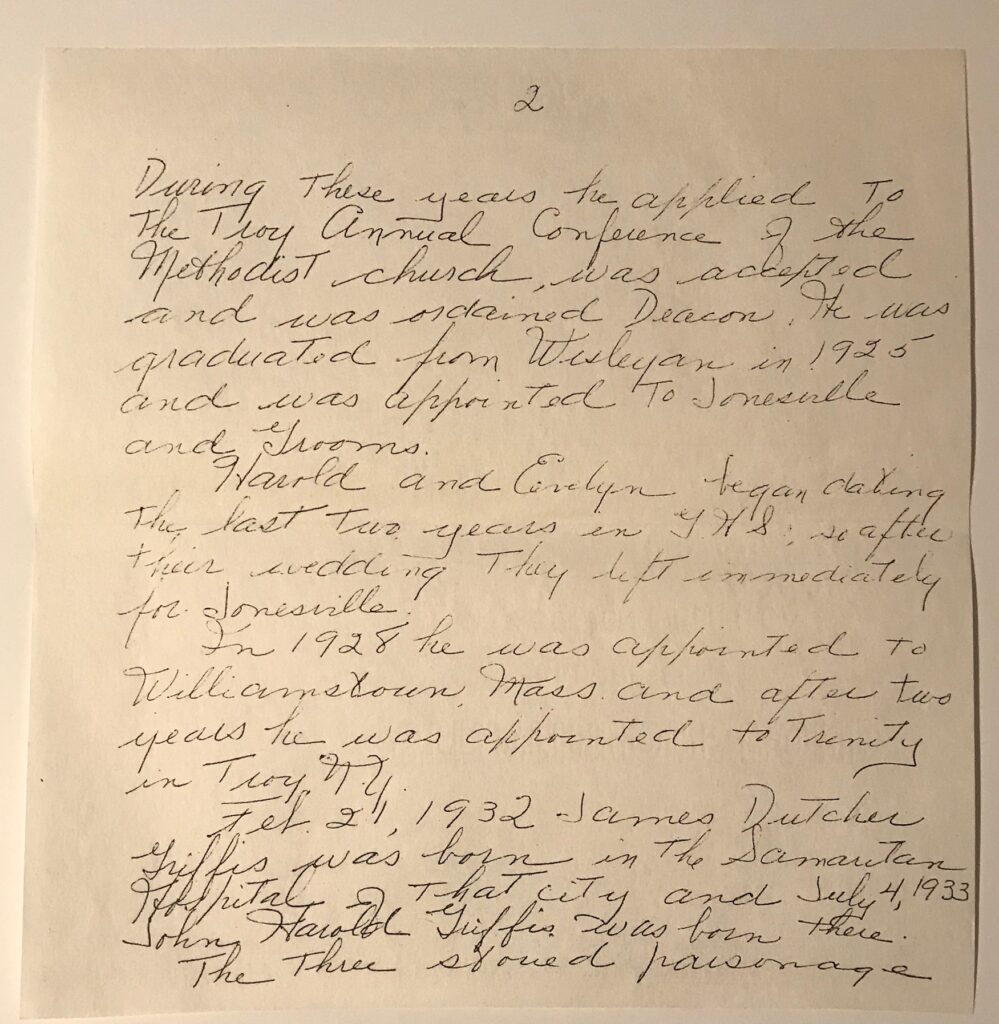 2
During these years he applied to
the Troy Annual Conference of the
Methodist church, was accepted
and was ordained Deacon. He was
graduated from Wesleyan in 1925
and was appointed to Jonesville
and Grooms.
Harold and Evelyn began dating
the last two years in G.H.S; so after
their wedding they left immediately
for Jonesville.
In 1928 he was appointed to
Williamstown, Mass. and after two
years he was appointed to Trinity
in Troy, N.Y.
Feb. 21, 1932 James Dutcher
Griffis was born in the Samaritan
Hospital of that city and July 4, 1933
John Harold Griffis was born there.
The three storied parsonage